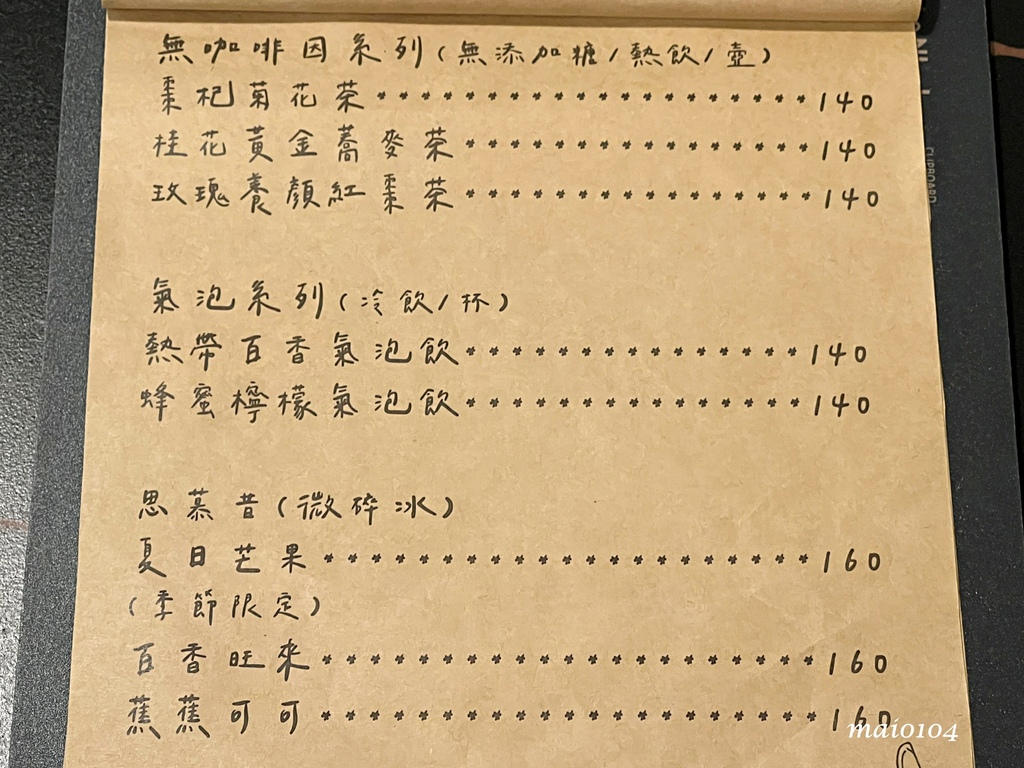 無咖啡因系列(無添加糖/熱飲/壺)
棗杞菊花茶******************140
桂花黃金蕎麥茶***************140
玫瑰養顏紅棗茶***************140
氣泡系列(冷飲/杯)
熱帶百香氣泡飲***************140
蜂蜜檸檬氣泡飲***************140
思慕昔(微碎冰)
夏日芒果*********************160
(季節限定)
百香旺來*********************160
蕉蕉可可*********************160
maio104